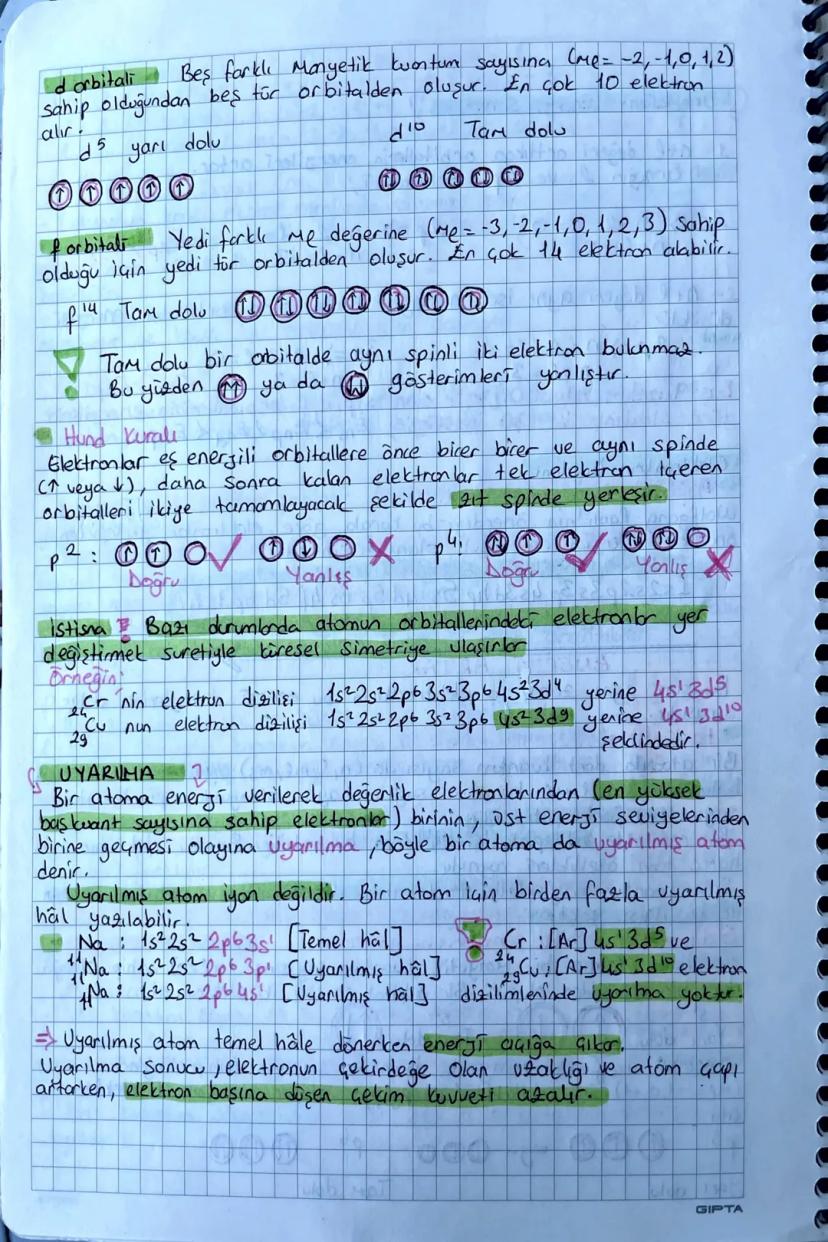 d orbitali Beş farklı Manyetik kuantum sayısına (mℓ= -2,-1,0,1,2)
sahip olduğundan beş tür orbitalden oluşur. En çok 10 elektron
alır.
d⁵ yarı dolu d¹⁰ Tam dolu
f orbitali Yedi farklı mℓ değerine (mℓ= -3,-2,-1,0,1,2,3) sahip
olduğu için yedi tür orbitalden oluşur. En çok 14 elektron alabilir.
f¹⁴ Tam dolu
! Tam dolu bir orbitalde aynı spinli iki elektron bulunmaz.
Bu yüzden ↑↑ ya da ↓↓ gösterimleri yanlıştır.
Hund Kuralı
Elektronlar eş enerjili orbitallere önce birer birer ve aynı spinde
(↑ veya ↓), daha sonra kalan elektronlar tek elektron içeren
orbitalleri ikiye tamamlayacak şekilde zıt spinde yerleşir.
p² : p⁴:
Doğru Yanlış Doğru Yanlış
istisna ! Bazı durumlarda atomun orbitallerindeki elektronlar yer
değiştirmek suretiyle küresel simetriye ulaşırlar
Örneğin;
₂₄Cr 'nin elektron dizilişi 1s²2s²2p⁶3s²3p⁶4s²3d⁴ yerine 4s¹3d⁵
₂₉Cu nun elektron dizilişi 1s²2s²2p⁶3s²3p⁶4s²3d⁹ yerine 4s¹3d¹⁰
şeklindedir.
UYARILMA
Bir atoma enerji verilerek değerlik elektronlarından (en yüksek
başkuant sayısına sahip elektronlar) birinin, üst enerji seviyelerinden
birine geçmesi olayına uyarılma, böyle bir atoma da uyarılmış atom
denir.
Uyarılmış atom iyon değildir. Bir atom için birden fazla uyarılmış
hâl yazılabilir.
₁₁Na : 1s²2s²2p⁶3s¹ [Temel hâl] ! ₂₄Cr : [Ar] 4s¹3d⁵ ve
₁₁Na : 1s²2s²2p⁶3p¹ [Uyarılmış hâl] ₂₉Cu : [Ar] 4s¹3d¹⁰ elektron
₁₁Na : 1s²2s²2p⁶4s¹ [Uyarılmış hâl] dizilimlerinde uyarılma yoktur.
⇒ Uyarılmış atom temel hâle dönerken enerji açığa çıkar.
Uyarılma sonucu, elektronun çekirdeğe olan uzaklığı ve atom çapı
artarken, elektron başına düşen çekim kuvveti azalır.
GIPTA